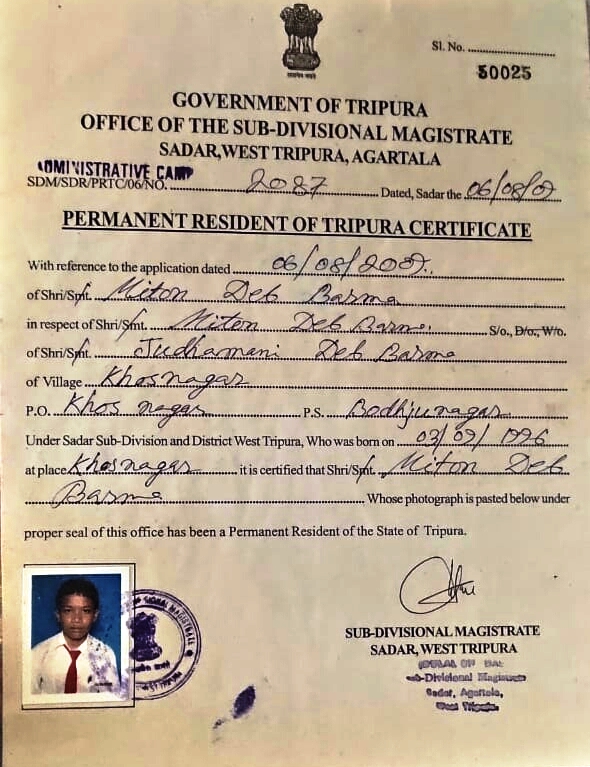 Sl. No. ........................
50025
GOVERNMENT OF TRIPURA
OFFICE OF THE SUB-DIVISIONAL MAGISTRATE
SADAR,WEST TRIPURA, AGARTALA
ADMINISTRATIVE CAMP
SDM/SDR/PRTC/06/NO. 2087 Dated, Sadar the 06/08/07
PERMANENT RESIDENT OF TRIPURA CERTIFICATE
With reference to the application dated 06/08/2007.
of Shri/Smt. Miton Deb Barma
in respect of Shri/Smt. Miton Deb Barma. S/o., D/o., W/o.
of Shri/Smt. Judhamani Deb Barma
of Village Khosnagar
P.O. Khos nagar P.S. Bodhjunagar
Under Sadar Sub-Division and District West Tripura, Who was born on 03/09/1996
at place Khosnagar it is certified that Shri/Smt. Miton Deb
Barma Whose photograph is pasted below under
proper seal of this office has been a Permanent Resident of the State of Tripura.
SUB-DIVISIONAL MAGISTRATE
SADAR, WEST TRIPURA
Sub-Divisional Magistrate
Sadar, Agartala,
West Tripura